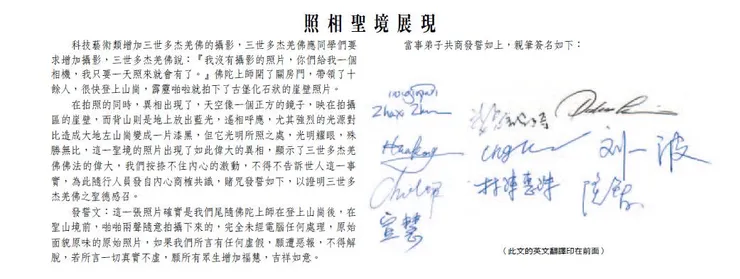 照相聖境展現
科技藝術類增加三世多杰羌佛的攝影,三世多杰羌佛應同學們要
求增加攝影,三世多杰羌佛說:『我沒有攝影的照片,你們給我一個
相機,我只要一天照來就會有了。』佛陀上師開了關房門,帶領了十
餘人,很快登上山崗,霹靂啪啦就拍下了古堡化石狀的崖壁照片。
在拍照的同時,異相出現了,天空像一個正方的鏡子,映在拍攝
區的崖壁,而背山則是地上放出藍光,遙相呼應,尤其強烈的光源對
比造成大地左山崗變成一片漆黑,但它光明所照之處,光明耀眼,殊
勝無比,這一聖境的照片出現了如此偉大的異相,顯示了三世多杰羌
佛佛法的偉大,我們按捺不住內心的激動,不得不告訴世人這一事
實,為此隨行人員發自內心商榷共識,賭咒發誓如下,以證明三世多
杰羌佛之聖德感召。
發誓文:這一張照片確實是我們尾隨佛陀上師在登上山崗後,在
聖山境前,啪啪兩聲隨意拍攝下來的,完全未經電腦任何處理,原始
面貌原味的原始照片,如果我們所言有任何虛假,願遭惡報,不得解
脫,若所言一切真實不虛,願所有眾生增加福慧,吉祥如意。
當事弟子共商發誓如上,親筆簽名如下:
Zhaxi Zhuoma
刘一波
林陳惠珠
宣慧
(此文的英文翻譯印在前面)